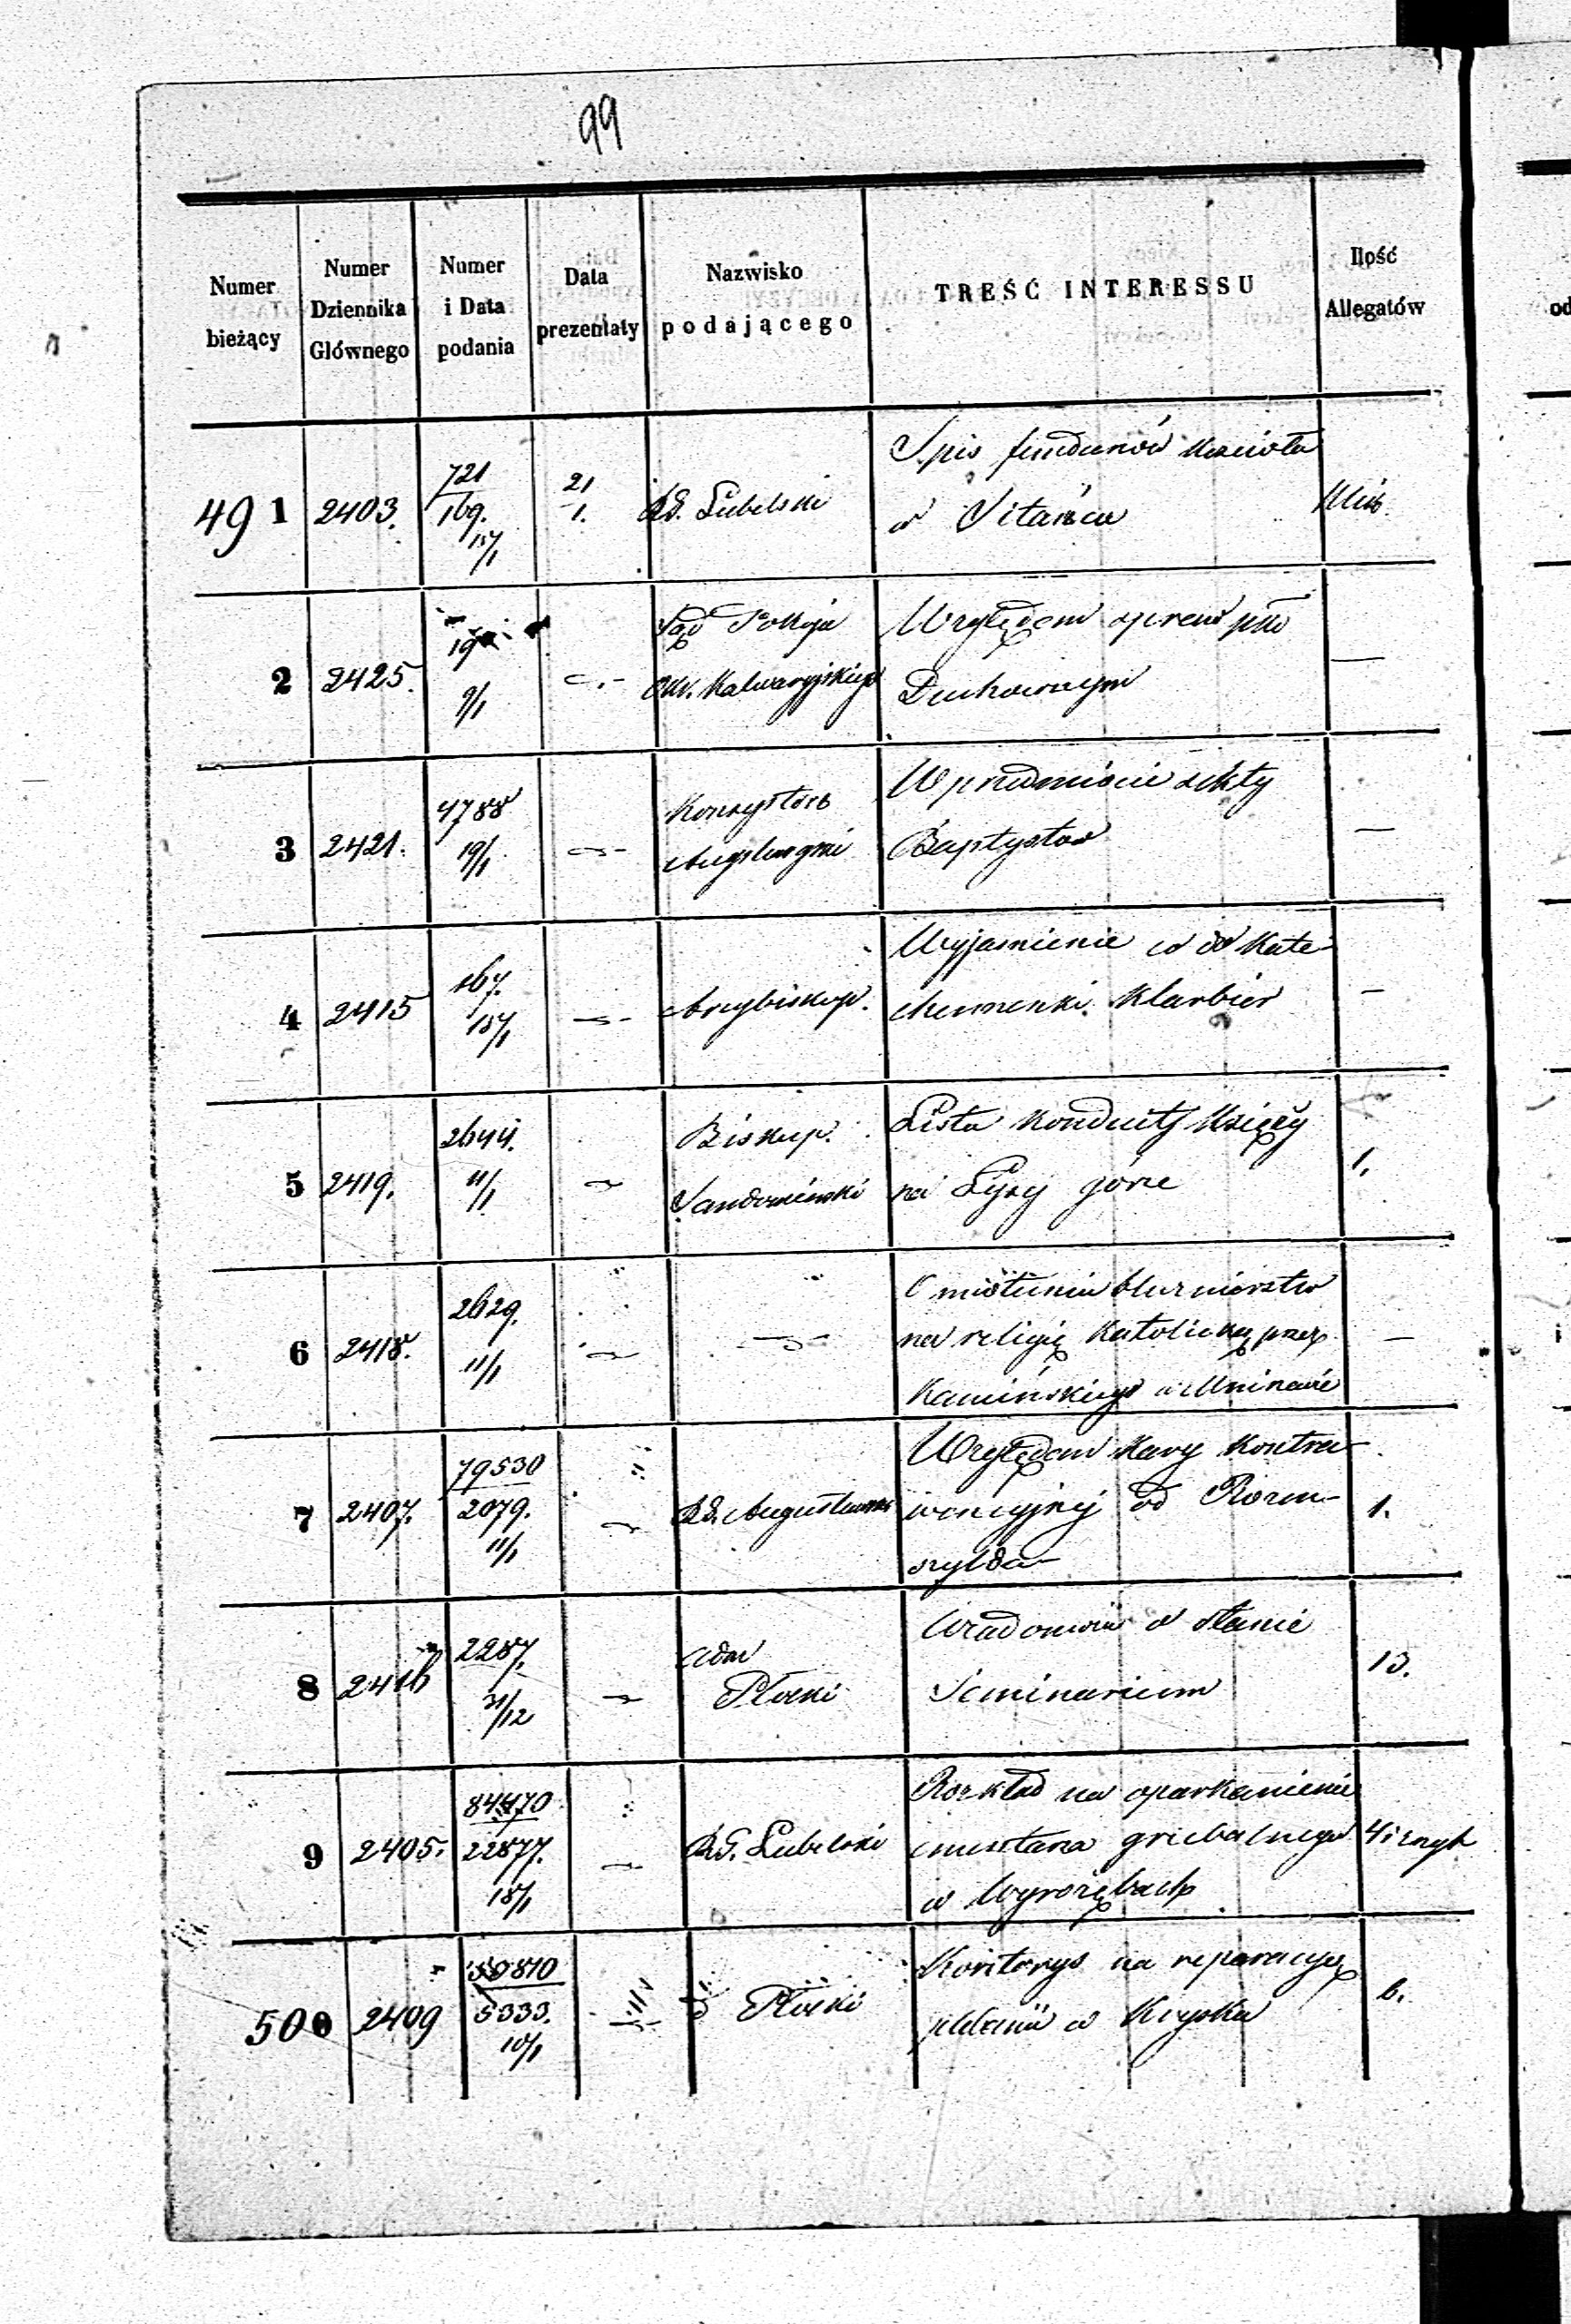 99
Numer bieżący
Numer Dziennika Głównego
Numer i Data podania
Data prezentaty
Nazwisko podającego
TREŚĆ INTERESSU
Ilość Allegatów
491 2403. 721 169. 15/1 21 1. R.G. Lubelski Spis funduszów kościoła
w Sitańcu
2 2425. 19 9/1 Sąd Pokoju Względem spraw
Okr. Kalwaryjskiego Duchownym —
3 2421. 4788 19/1 Konsystorz W przedmiocie sekty
Augsburgski Baptystów —
4 2415 167. 15/1 Arcybiskup. Wyjaśnienie co do Kate-
chumenki Klarbier —
5 2419. 2644. 11/1 Biskup Lista Konduity Księży
Sandomierski na Łysej górze 1.
6 2418. 2629. 11/1 O miotaniu bluznierstw
na religię Katolicką przez —
Kamińskiego w
7 2407. 79530 2079. 11/1 R.G. Augustowski Względem Kary kontra-
wencyjnej od Rozen- 1.
szylda
8 2416 2287. 31/12 Adm Wiadomość o stanie
Płocki Seminarium 13.
9 2405. 84470 22877. 15/1 R.G. Lubelski Rozkład na oparkanienie
cmentarza grzebalnego 4 i zszyt
w Wyrozębach
500 2409 59810 5333. 10/1 Płocki Kosztorys na reparacyę
plebanii w Krysku 6.